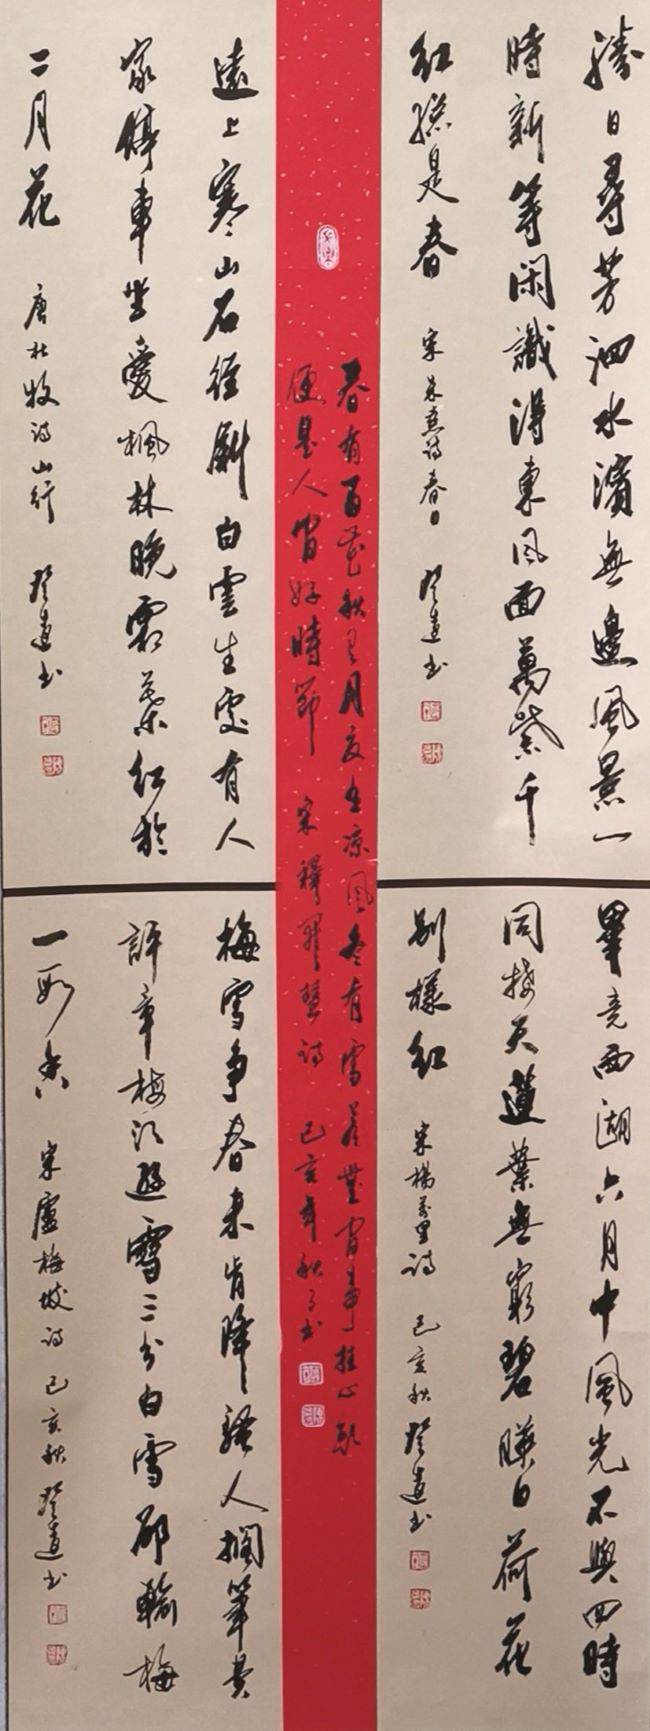 勝日尋芳泗水濱無邊風景一
時新等閑識得東風面萬紫千
紅總是春
宋朱熹詩春日
畢竟西湖六月中風光不與四時
同接天蓮葉無窮碧映日荷花
別樣紅
宋楊万里詩 己亥秋
春有百花秋有月夏有凉風冬有雪若無閑事挂心頭
便是人間好時節
宋釋 慧詩 己亥年秋月书
遠上寒山石徑斜白雲生處有人
家停車坐愛楓林晚霜葉紅於
二月花
唐杜牧詩山行
梅雪争春未肯降騷人擱筆費
評章梅須遜雪三分白雪却輸梅
一段香
宋盧梅坡詩 己亥秋